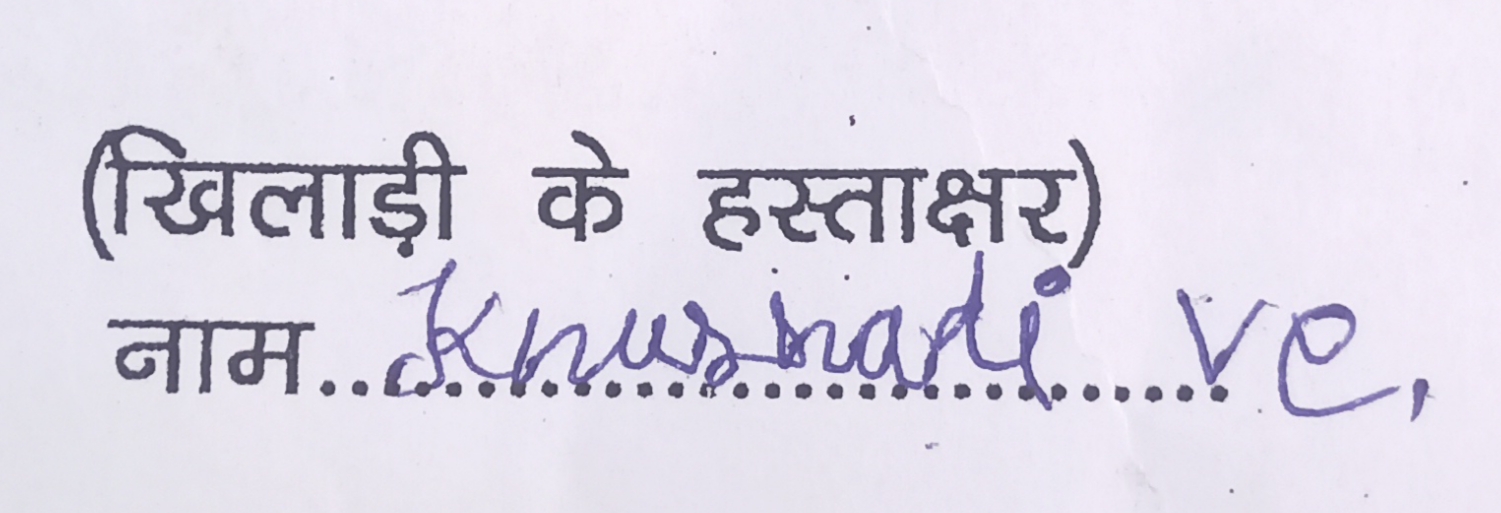 (खिलाड़ी के हस्ताक्षर)
नाम.................... Khushadi ve.